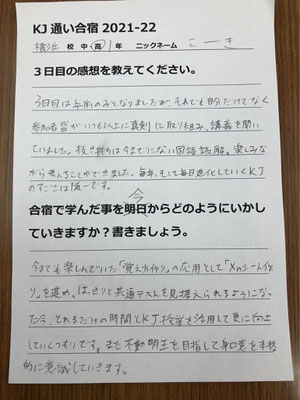 KJ 通い合宿 2021-22
横浜 校 中・高 1 年 ニックネーム こーき
3日目の感想を教えてください。
3日目は午前のみとなりましたが、それでも自分だけでなく
参加者皆がいつも以上に真剣に取り組み、講義を聞い
ていました。抜き打ちは今までにない国語読解。楽しみな
がら考えることができました。毎年、そして毎日進化していくKJ
のすごさは随一です。
今
合宿で学んだ事を明日からどのようにいかし
ていきますか?書きましょう。
今までも楽しんでいた「覚え方作り」の応用として「Xmシート作
り」を進め、はっきりと共通テストを見据えられるようになっ
た今、とれるだけの時間とKJ授業も活用して更に向上
していくつもりです。また不動明王を目指して身口意を本格
的に意識していきます。